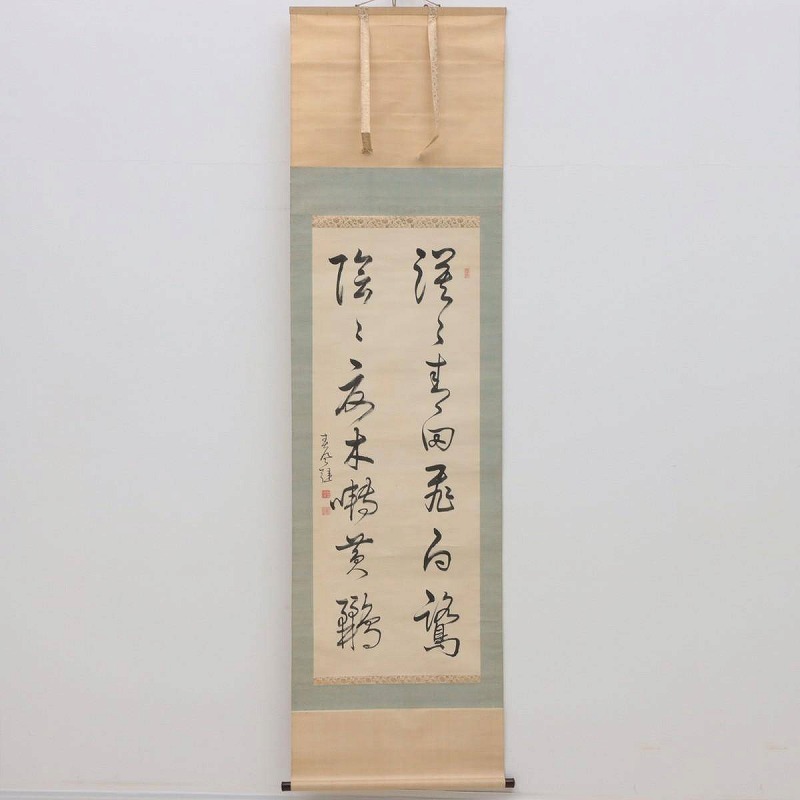 漠〻水田飛白鷺
陰〻夏木囀黄鸝